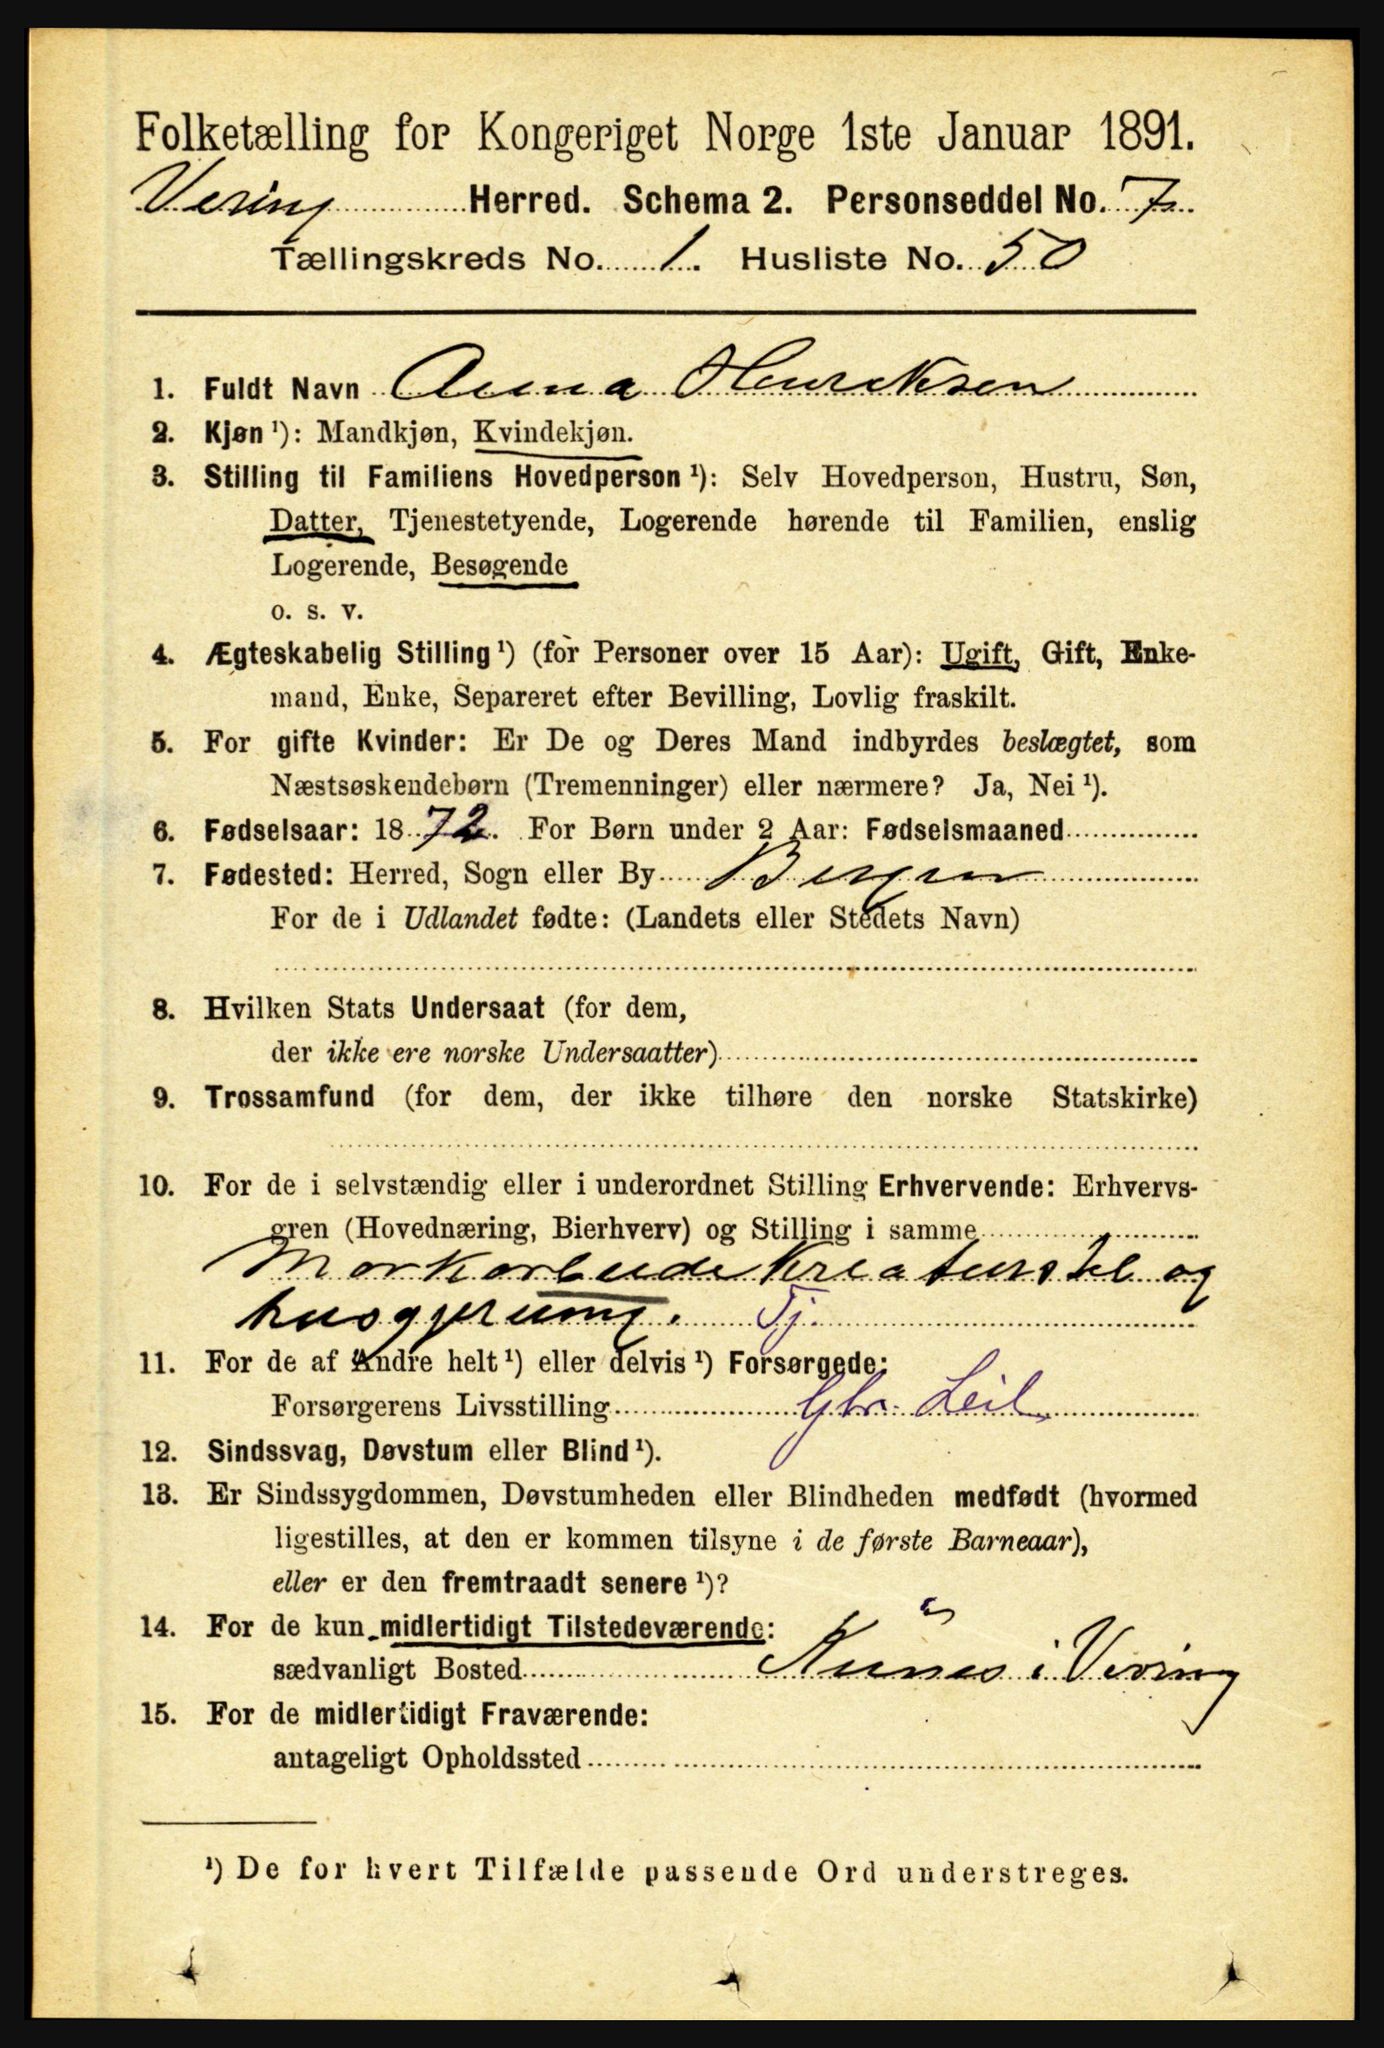 Folketælling for Kongeriget Norge 1ste Januar 1891.
Vering Herred. Schema 2. Personseddel No. 7
Tællingskreds No. 1. Husliste No. 50
1. Fuldt Navn Anna Henreksen
2. Kjøn ¹): Mandkjøn, Kvindekjøn.
3. Stilling til Familiens Hovedperson ¹): Selv Hovedperson, Hustru, Søn,
Datter, Tjenestetyende, Logerende hørende til Familien, enslig
Logerende, Besøgende
o. s. v.
4. Ægteskabelig Stilling ¹) (for Personer over 15 Aar): Ugift, Gift, Enke-
mand, Enke, Separeret efter Bevilling, Lovlig fraskilt.
5. For gifte Kvinder: Er De og Deres Mand indbyrdes beslægtet, som
Næstsøskendebørn (Tremenninger) eller nærmere? Ja, Nei ¹).
6. Fødselsaar: 1872. For Børn under 2 Aar: Fødselsmaaned
7. Fødested: Herred, Sogn eller By Bergen
For de i Udlandet fødte: (Landets eller Stedets Navn)
8. Hvilken Stats Undersaat (for dem,
der ikke ere norske Undersaatter)
9. Trossamfund (for dem, der ikke tilhøre den norske Statskirke)
10. For de i selvstændig eller i underordnet Stilling Erhvervende: Erhvervs-
gren (Hovednæring, Bierhverv) og Stilling i samme
Markarbeide Kreaturstel og
husgjerning. Tj.
11. For de af Andre helt ¹) eller delvis ¹) Forsørgede:
Forsørgerens Livsstilling Gbr. Leil.
12. Sindssvag, Døvstum eller Blind ¹).
13. Er Sindssygdommen, Døvstumheden eller Blindheden medfødt (hvormed
ligestilles, at den er kommen tilsyne i de første Barneaar),
eller er den fremtraadt senere ¹)?
14. For de kun midlertidigt Tilstedeværende:
sædvanligt Bosted i Vevring
15. For de midlertidigt Fraværende:
antageligt Opholdssted
¹) De for hvert Tilfælde passende Ord understreges.